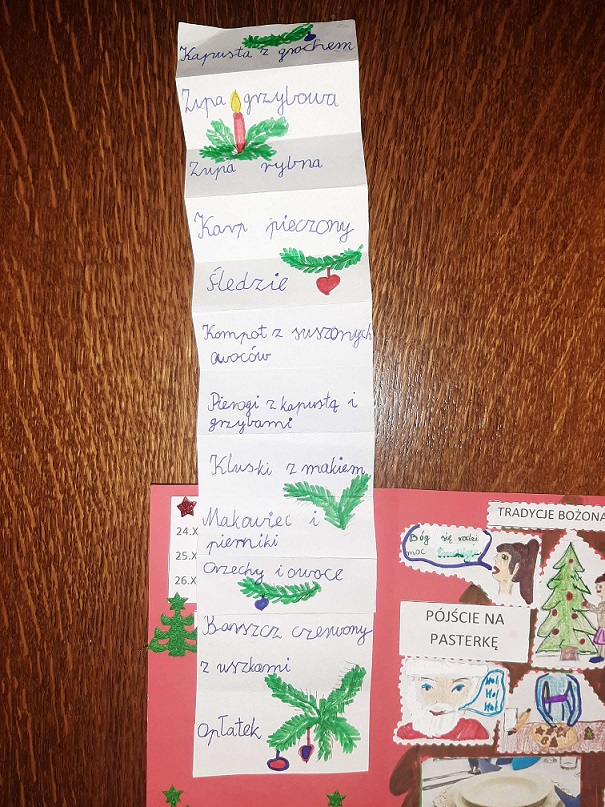 Kapusta z grochem
Zupa grzybowa
Zupa rybna
Karp pieczony
Śledzie
Kompot z suszonych
owoców
Pierogi z kapustą i
grzybami
Kluski z makiem
Makowiec i
pierniki
Orzechy i owoce
Barszcz czerwony
z uszkami
opłatek
24.X
25.X
26.X
TRADYCJE BOŻONA
Bóg się rodzi
moc
PÓJŚCIE NA
PASTERKĘ
Ho!
Ho!
Ho!